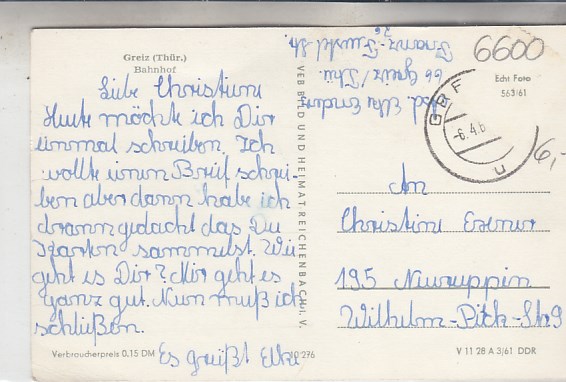 Greiz (Thür.)
Bahnhof
Liebe Christine
Heute möchte ich Dir
einmal schreiben. Ich
wollte einen Brief schrei-
ben aber dann habe ich
drann gedacht das Du
Karten sammelst. Wie
geht es Dir? Mir geht es
ganz gut. Nun muß ich
schließen.
Es grüßt Elke
Verbraucherpreis 0,15 DM
VEB BILD UND HEIMAT REICHENBACH i. V.
Abs. Elke
66 Greiz/Thü.
Franz-
Str.
26
6600
Echt Foto
563/61
GRE
-6.4.6
u
6,-
An
Christine
195 Neuruppin
Wilhelm-Pick-Str 9
V 11 28 A 3/61 DDR